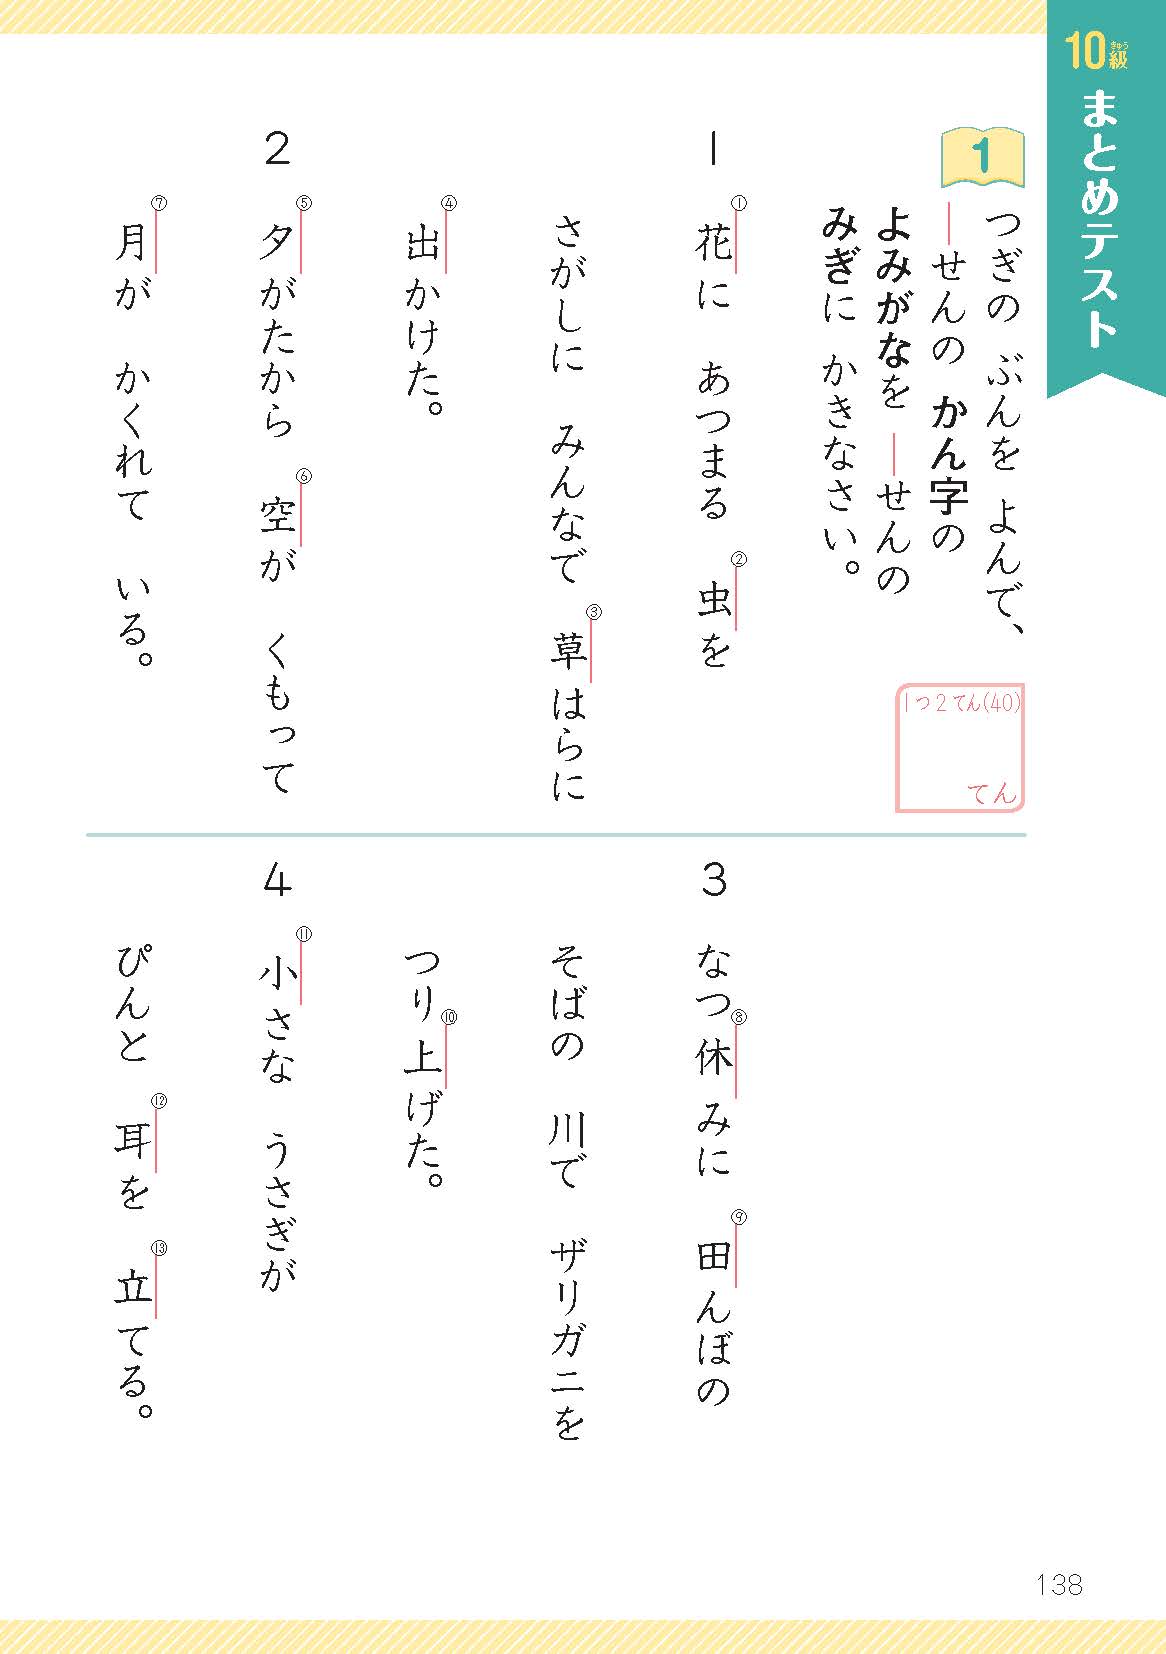 10級
きゅう
まとめテスト
1
つぎの ぶんを よんで、
―せんの かん字の
よみがなを ―せんの
みぎに かきなさい。
1つ2てん(40)
てん
1
①花に あつまる ②虫を
さがしに みんなで ③草はらに
④出かけた。
2
⑤夕がたから ⑥空が くもって
⑦月が かくれて いる。
3
なつ⑧休みに ⑨田んぼの
そばの 川で ザリガニを
つり⑩上げた。
4
⑪小さな うさぎが
ぴんと ⑫耳を ⑬立てる。
138